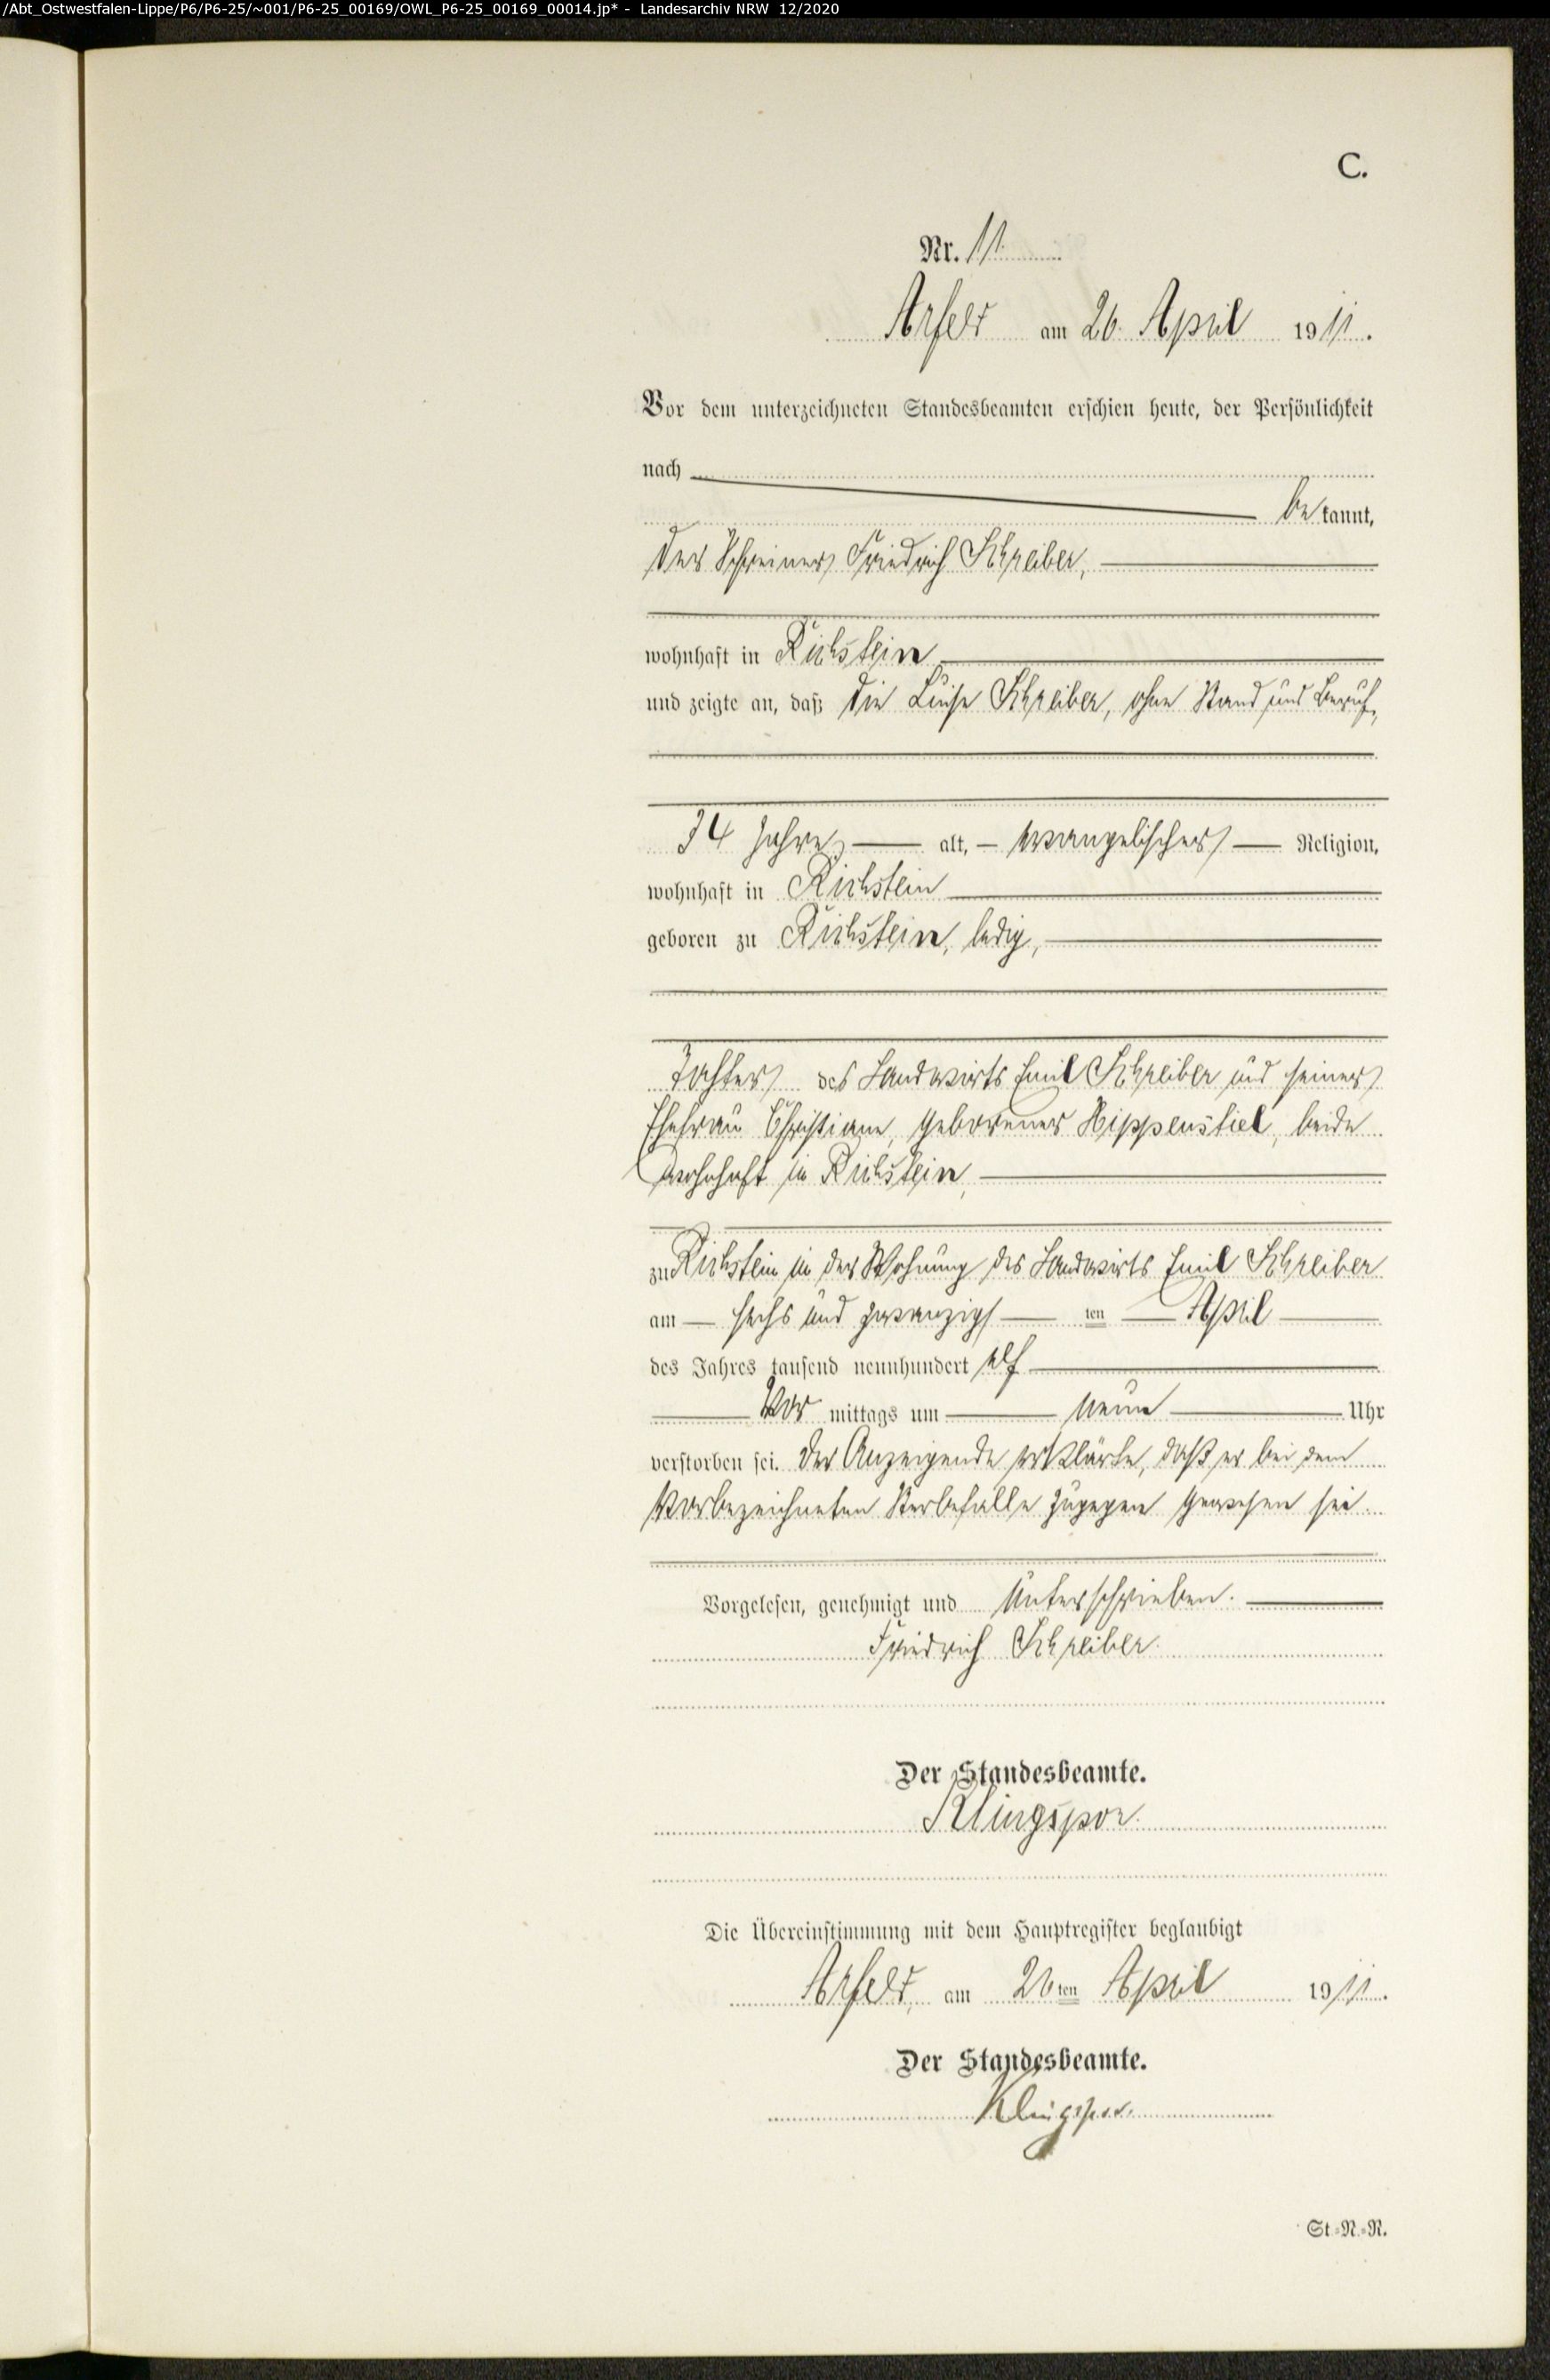 /Abt_Ostwestfalen-Lippe/P6/P6-25/~001/P6-25_00169/OWL_P6-25_00169_00014.jp* - Landesarchiv NRW 12/2020
C.
Nr. 11
Arfeld am 26. April 1911.
Vor dem unterzeichneten Standesbeamten erschien heute, der Persönlichkeit
nach
bekannt,
der Schreiner Friedrich Schreiber,
wohnhaft in Richstein
und zeigte an, daß die Luise Schreiber, ohne Stand und Beruf,
Jahre, alt, evangelischer Religion,
wohnhaft in Richstein
geboren zu Richstein, ledig,
Tochter des Landwirts Emil Schreiber und seiner
Ehefrau Christiane, geborener Hippenstiel, beide
wohnhaft in Richstein,
zu Richstein in der Wohnung des Landwirts Emil Schreiber
am sechs und zwanzigsten April
des Jahres tausend neunhundert elf
Vor mittags um neun Uhr
verstorben sei. Der Anzeigende erklärte, daß er bei dem
vorbezeichneten Sterbefalle zugegen gewesen sei.
Vorgelesen, genehmigt und unterschrieben.
Friedrich Schreiber.
Der Standesbeamte.
Klingspor.
Die Übereinstimmung mit dem Hauptregister beglaubigt
Arfeld, am 26ten April 1911.
Der Standesbeamte.
Klingspor.
St.=N.=R.